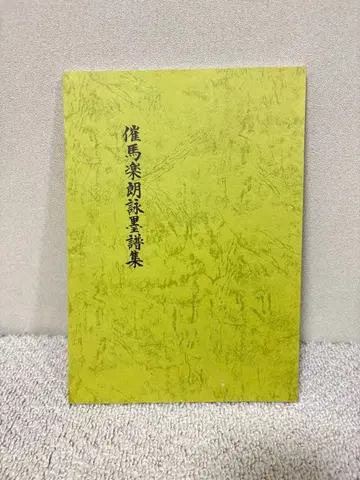 催馬楽朗詠墨譜集